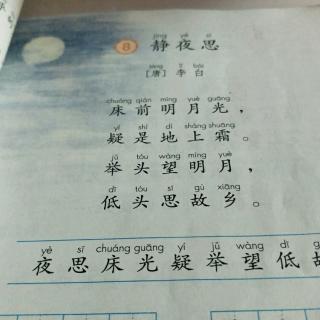 jìng yè sī
8 静夜思
táng lǐ bái
[唐] 李白
chuáng qián míng yuè guāng
床前明月光，
yí shì dì shàng shuāng
疑是地上霜。
jǔ tóu wàng míng yuè
举头望明月，
dī tóu sī gù xiāng
低头思故乡。
yè sī chuáng guāng yí jǔ wàng dī g
夜思床光疑举望低故